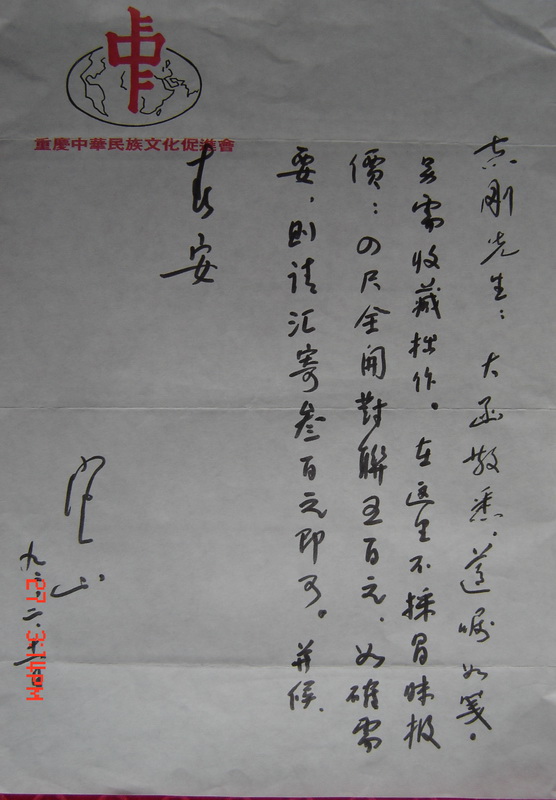 重慶中華民族文化促進會
剛先生：大函敬悉，遵嘱如笺。
需收藏拙作。在这里不揣冒昧报
價：四尺全開對聯五百元，如確需
要，则请汇寄叁百元即可。并候，
春安
山
27 3:14PM